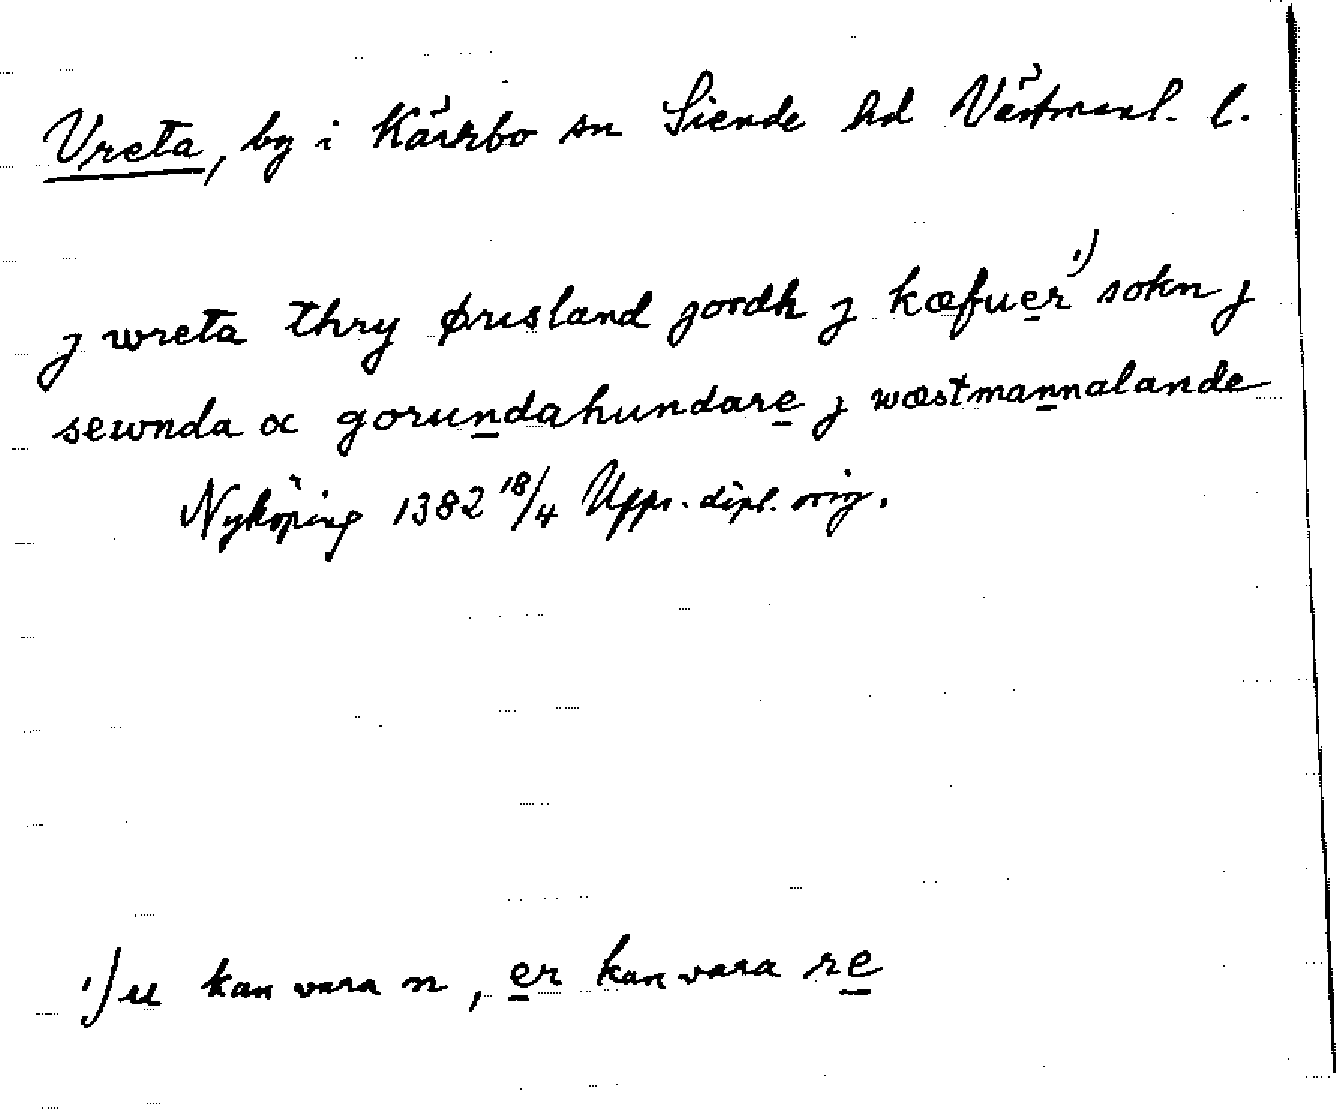 Vreta, by i Kärrbo sn Siende hd Västmanl. l.
j wreta thry ørisland jordh j kæfuer ¹) sokn j
sewnda oc gorundahundare j wæstmannalande
Nyköping 1382 18/4 Upps. dipl. orig.
¹) u kan vara n, er kan vara re